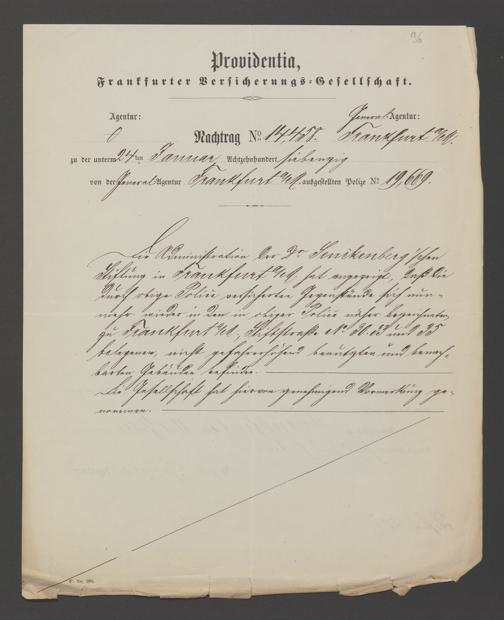 96
Providentia,
Frankfurter Versicherungs-Gesellschaft.
Agentur: General-Agentur:
0 Nachtrag No. 14,458. Frankfurt a/M.
zu der unterm 24ten Januar Achtzehnhundert siebenzig
von der General-Agentur Frankfurt a/M. ausgestellten Polize No 19,669.
Die Administration der Dr Senckenberg'schen
Stiftung in Frankfurt a/M. hat angezeigt, daß die
durch obige Police versicherten Gegenstände sich nun-
mehr wieder in den in obiger Police näher bezeichneten
zu Frankfurt a/M., Stiftstraße No 31. 33 und 35
belegenen, nicht gefahrerhöhend benutzten und benach-
barten Gebäuden befinden.
Die Gesellschaft hat hiervon genehmigend Vormerkung ge-
nommen.